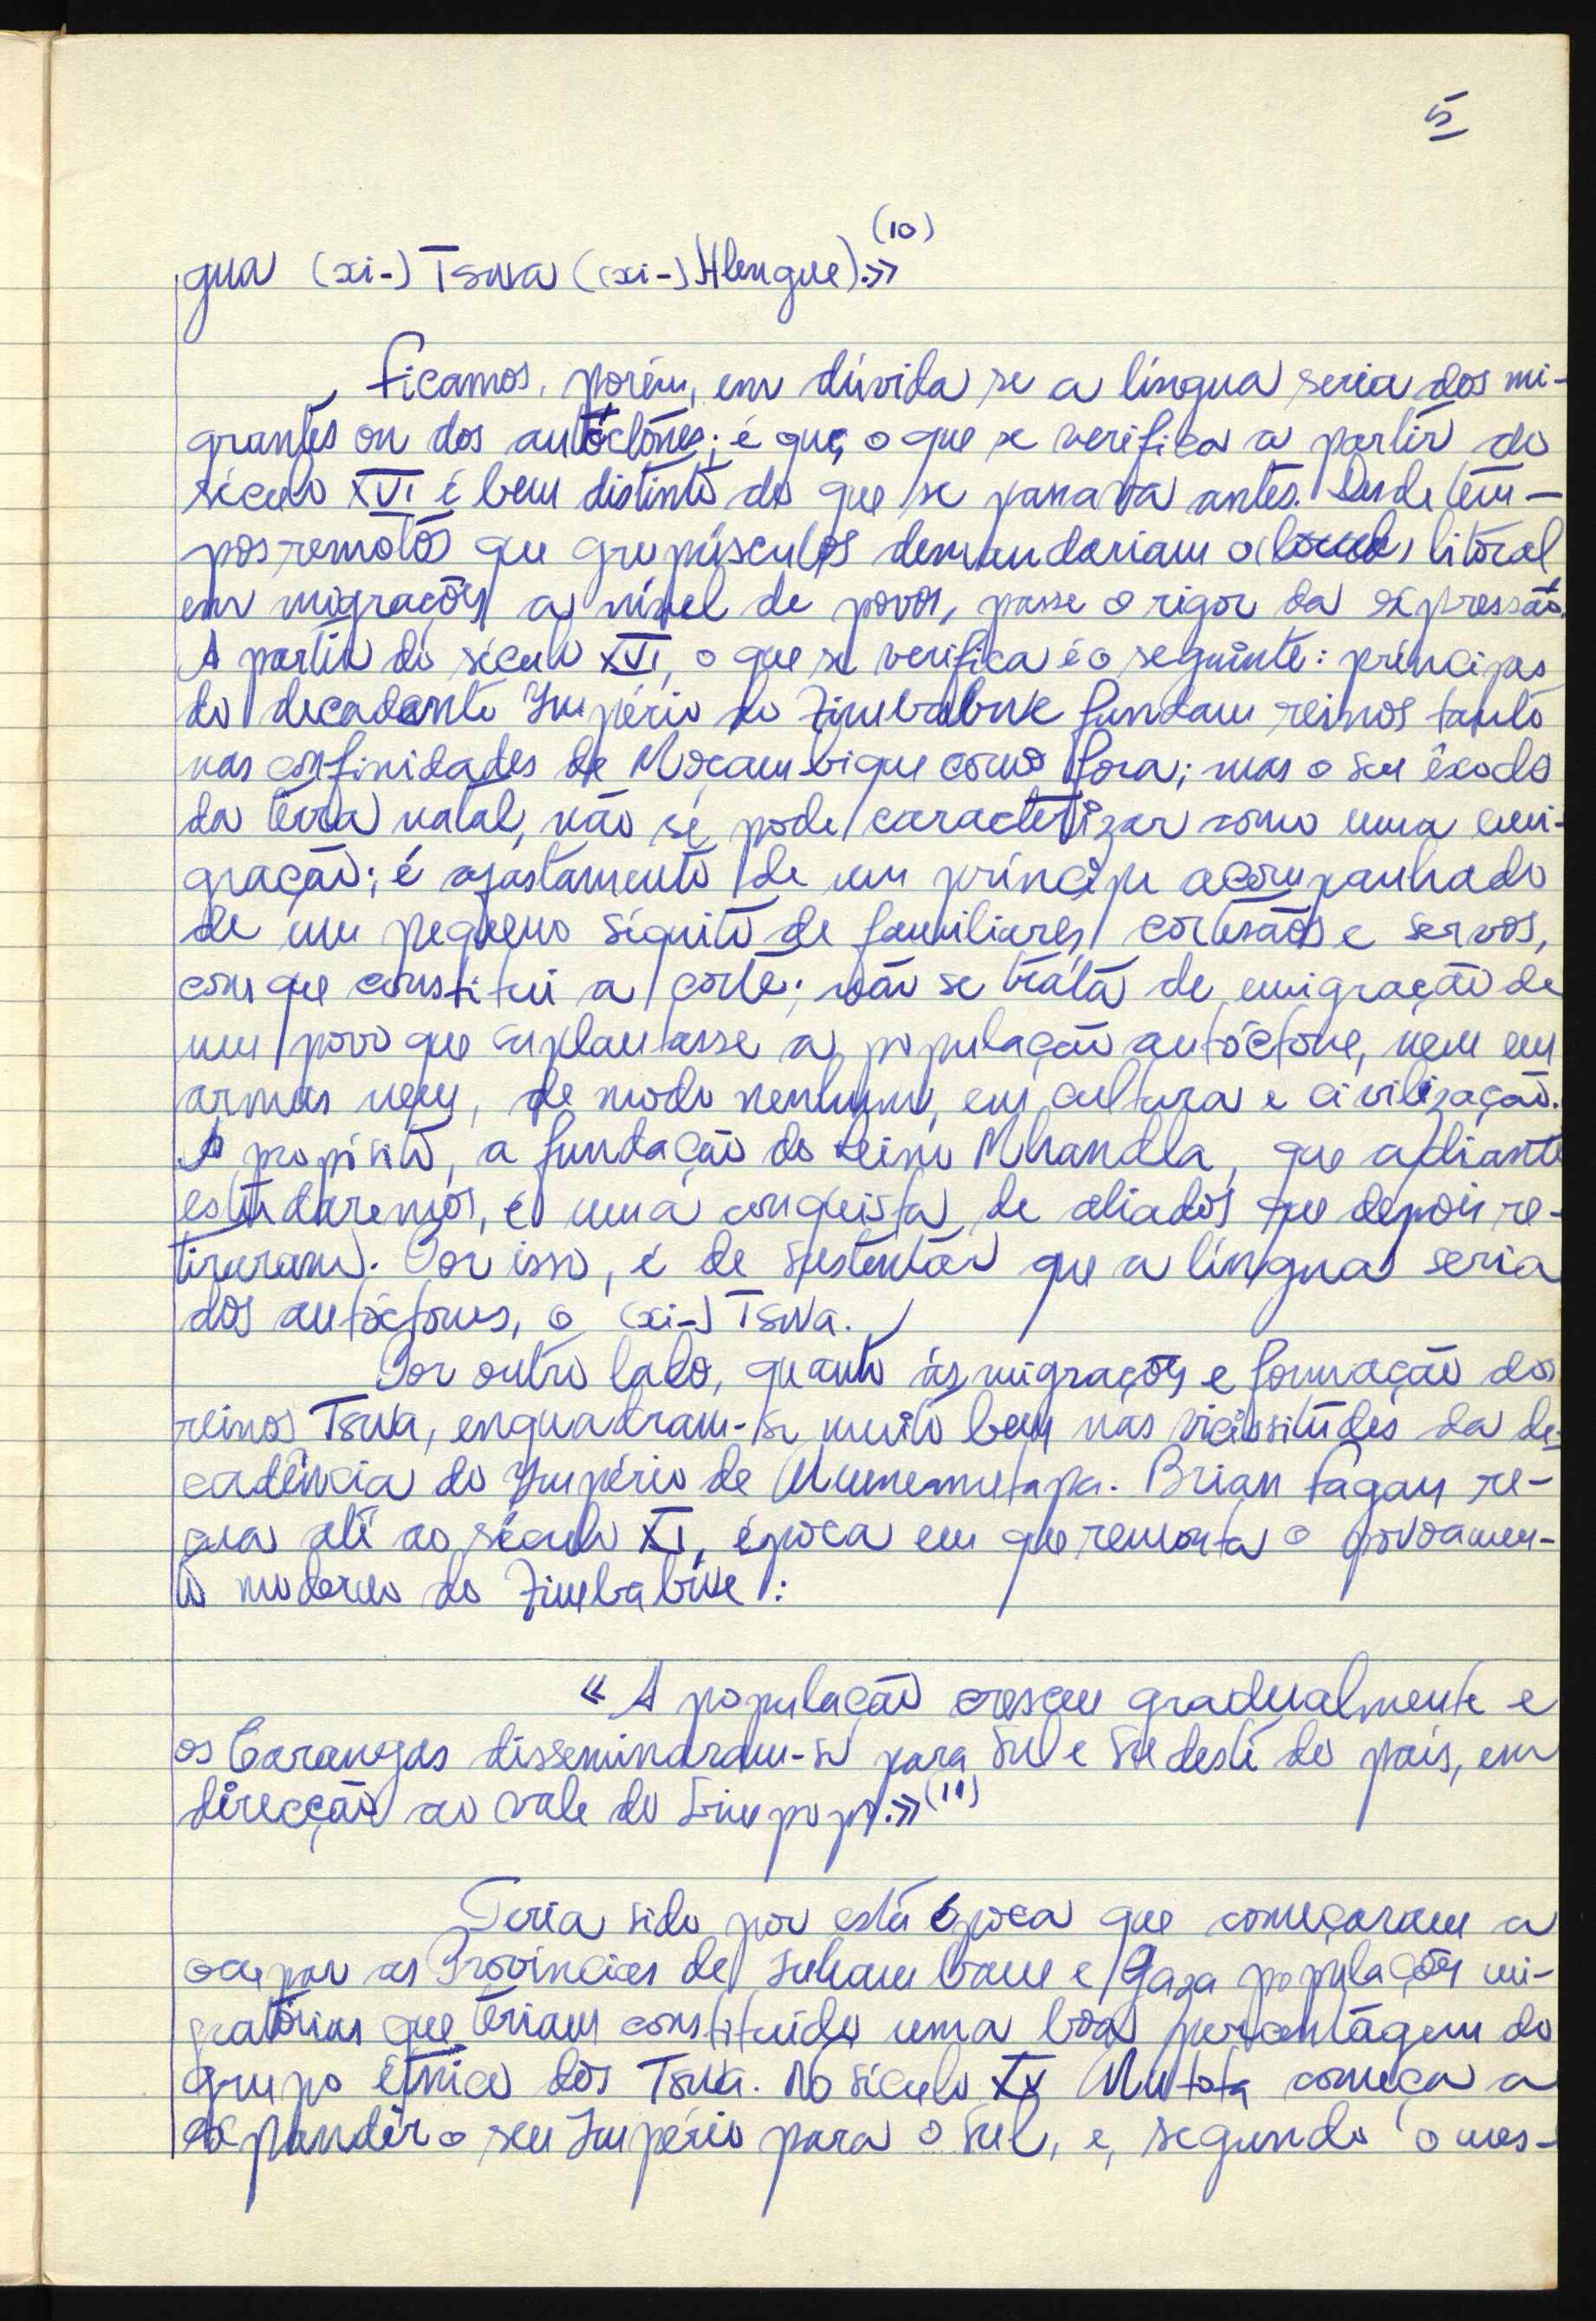 5
(10)
gua (xi-) Tswa ((xi-) Hlengue).»
Ficamos, porém, em dúvida se a língua seria dos mi-
grantes ou dos autóctones; é que, o que se verifica a partir do
século XVI é bem distinto do que se passava antes. Desde tem-
pos remotos que grupúsculos demandariam o litoral
em migrações a nível de povos, passe o rigor da expressão.
A partir do século XVI, o que se verifica é o seguinte: príncipes
do decadente Império do Zimbabwe fundam reinos tanto
nas confinidades de Moçambique como fora; mas o seu êxodo
da terra natal, não se pode caracterizar como uma emi-
gração; é afastamento de um príncipe acompanhado
de um pequeno séquito de familiares, cortesãos e servos,
com que constitui a corte; não se trata de emigração de
um povo que suplantasse a população autóctone, nem em
armas nem, de modo nenhum, em cultura e civilização.
A propósito, a fundação do reino Mhandla, que adiante
estudaremos, é uma conquista de aliados que depois re-
tiraram. Por isso, é de sustentar que a língua seria
dos autóctones, o (xi-) Tswa.
Por outro lado, quanto às migrações e formação dos
reinos Tswa, enquadram-se muito bem nas vicissitudes da de-
cadência do Império de Muenemutapa. Brian Fagan re-
cua até ao século XI, época em que remonta o povoamen-
to moderno do Zimbabwe:
« A população cresceu gradualmente e
os Carangas disseminaram-se para Sul e Sudeste do país, em
direcção ao vale do Limpopo.»(11)
Teria sido por esta época que começaram a
ocupar as Províncias de Inhambane e Gaza populações mi-
gratórias que teriam constituído uma boa percentagem do
grupo étnico dos Tswa. No século XV Mutota começa a
expandir o seu Império para o Sul, e, segundo o mes-